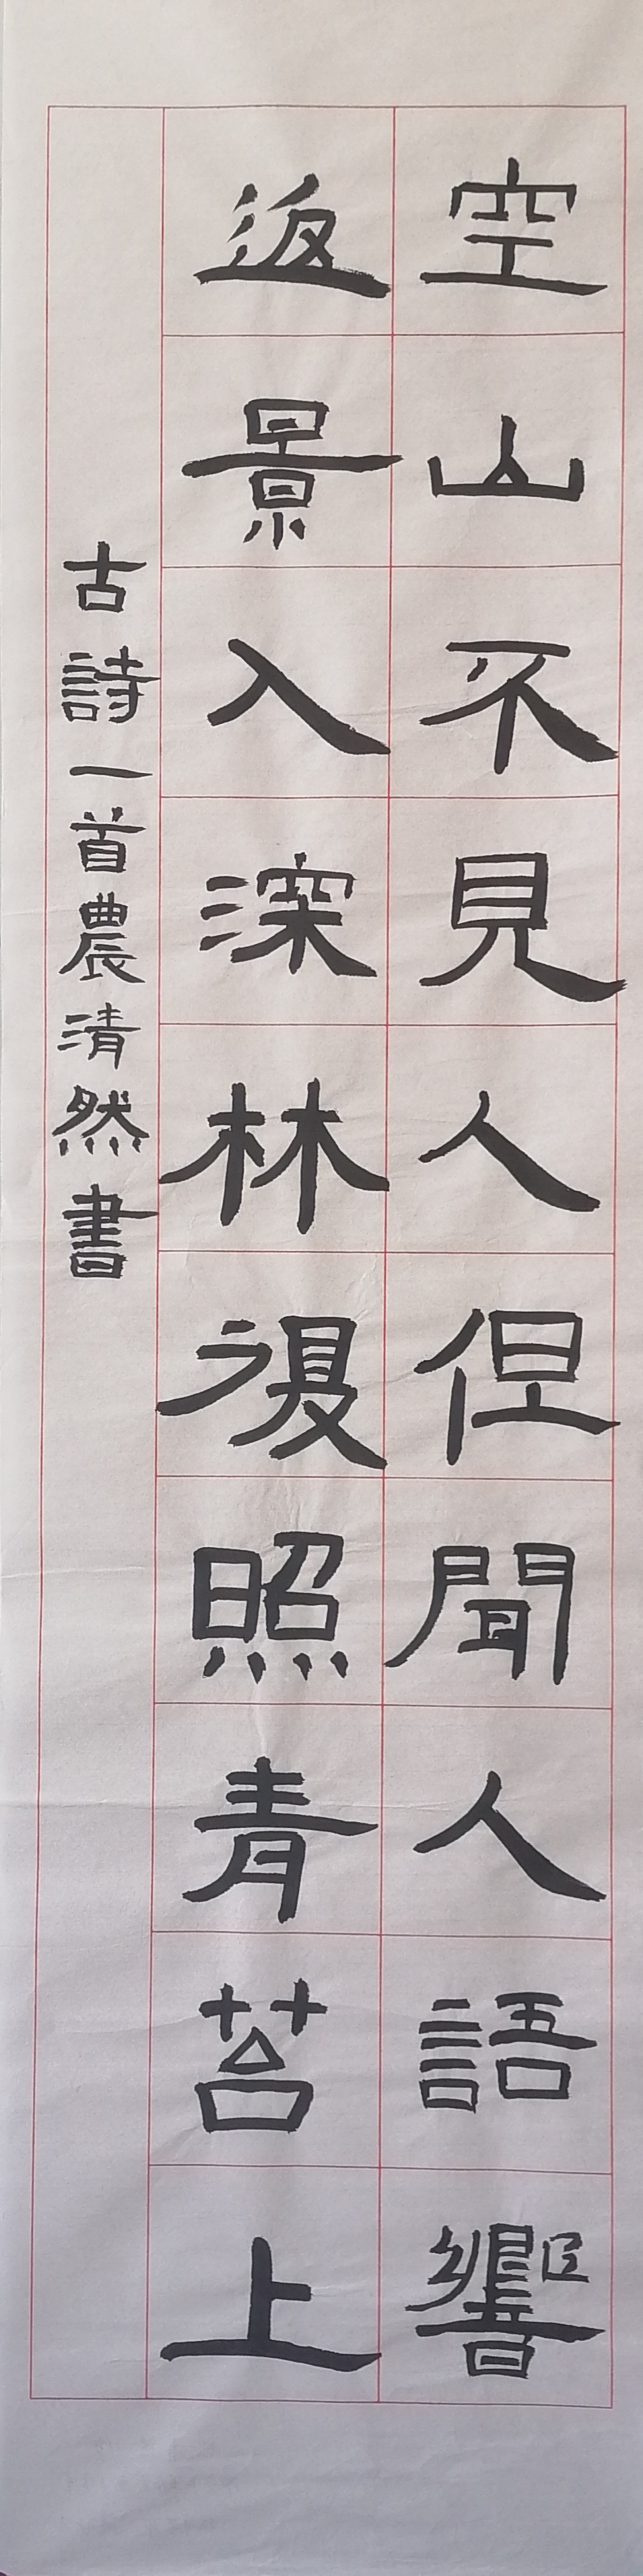 空山不見人但聞人語響
返景入深林復照青苔上
古詩一首農清然書